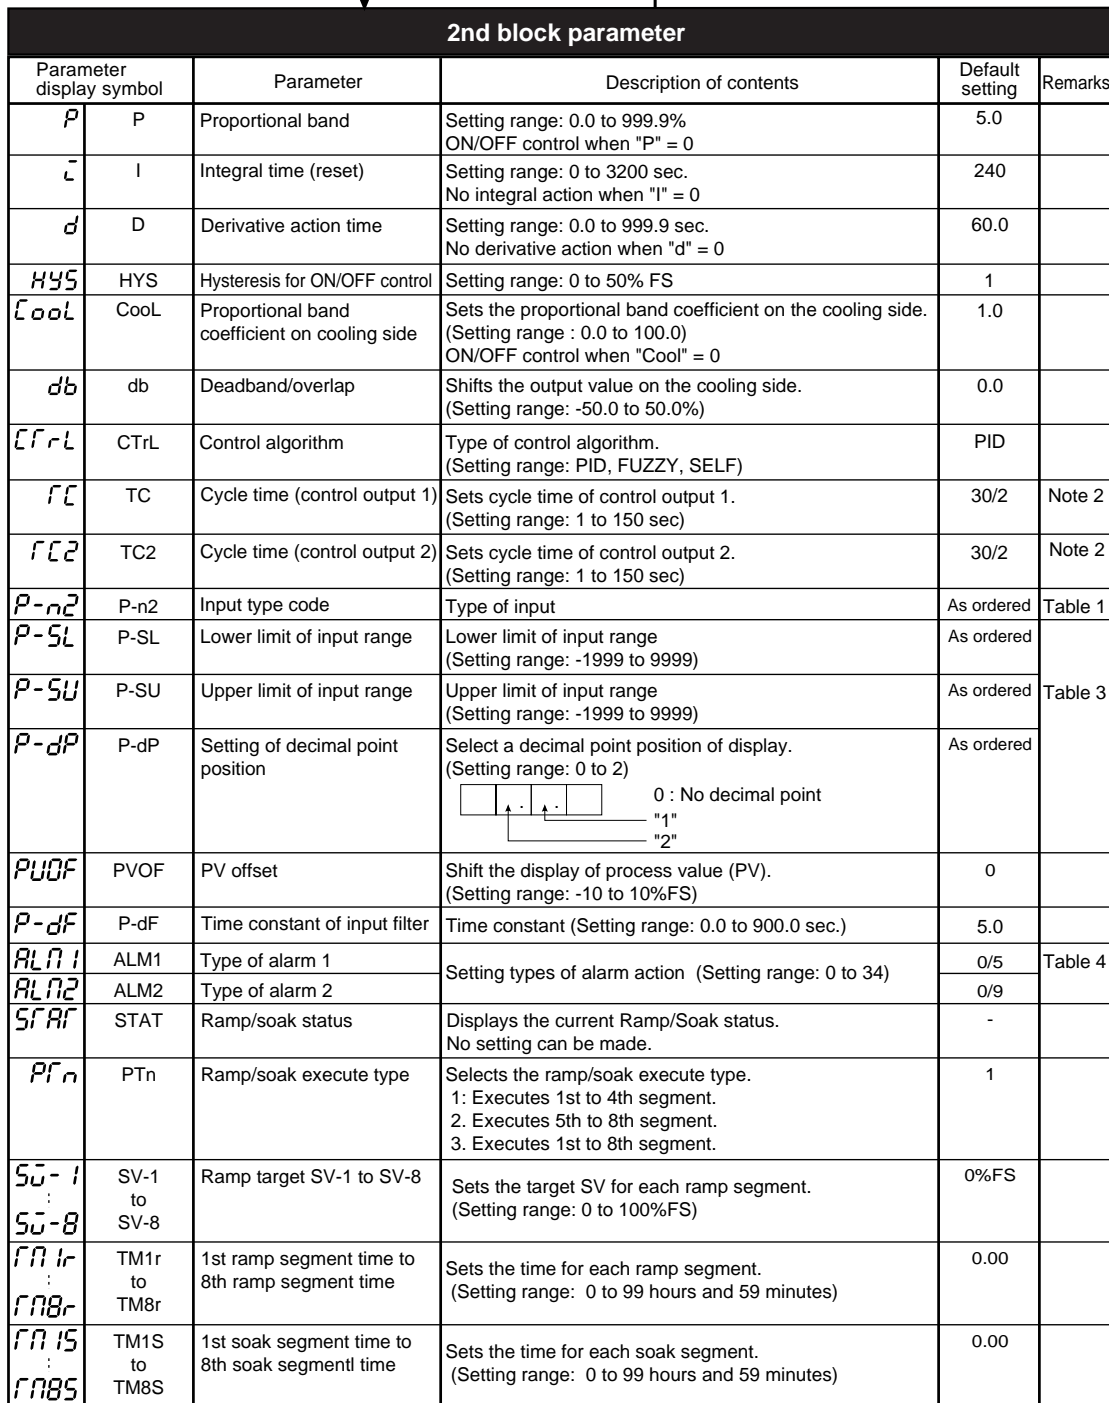 2nd block parameter
Parameter display symbol Parameter Description of contents Default setting Remarks
P P Proportional band Setting range: 0.0 to 999.9% 5.0
ON/OFF control when "P" = 0
i I Integral time (reset) Setting range: 0 to 3200 sec. 240
No integral action when "I" = 0
d D Derivative action time Setting range: 0.0 to 999.9 sec. 60.0
No derivative action when "d" = 0
HYS HYS Hysteresis for ON/OFF control Setting range: 0 to 50% FS 1
CooL CooL Proportional band Sets the proportional band coefficient on the cooling side. 1.0
coefficient on cooling side (Setting range : 0.0 to 100.0)
ON/OFF control when "Cool" = 0
db db Deadband/overlap Shifts the output value on the cooling side. 0.0
(Setting range: -50.0 to 50.0%)
CTrL CTrL Control algorithm Type of control algorithm. PID
(Setting range: PID, FUZZY, SELF)
TC TC Cycle time (control output 1) Sets cycle time of control output 1. 30/2 Note 2
(Setting range: 1 to 150 sec)
TC2 TC2 Cycle time (control output 2) Sets cycle time of control output 2. 30/2 Note 2
(Setting range: 1 to 150 sec)
P-n2 P-n2 Input type code Type of input As ordered Table 1
P-SL P-SL Lower limit of input range Lower limit of input range As ordered
(Setting range: -1999 to 9999)
P-SU P-SU Upper limit of input range Upper limit of input range As ordered Table 3
(Setting range: -1999 to 9999)
P-dP P-dP Setting of decimal point Select a decimal point position of display. As ordered
position (Setting range: 0 to 2)
0 : No decimal point
"1"
"2"
PVOF PVOF PV offset Shift the display of process value (PV). 0
(Setting range: -10 to 10%FS)
P-dF P-dF Time constant of input filter Time constant (Setting range: 0.0 to 900.0 sec.) 5.0
ALM1 ALM1 Type of alarm 1 Setting types of alarm action (Setting range: 0 to 34) 0/5 Table 4
ALM2 ALM2 Type of alarm 2 0/9
STAT STAT Ramp/soak status Displays the current Ramp/Soak status. -
No setting can be made.
PTn PTn Ramp/soak execute type Selects the ramp/soak execute type. 1
1: Executes 1st to 4th segment.
2. Executes 5th to 8th segment.
3. Executes 1st to 8th segment.
Sv-1 SV-1 Ramp target SV-1 to SV-8 Sets the target SV for each ramp segment. 0%FS
: to (Setting range: 0 to 100%FS)
Sv-8 SV-8
TM1r TM1r 1st ramp segment time to Sets the time for each ramp segment. 0.00
: to 8th ramp segment time (Setting range: 0 to 99 hours and 59 minutes)
TM8r TM8r
TM1S TM1S 1st soak segment time to Sets the time for each soak segment. 0.00
: to 8th soak segmentl time (Setting range: 0 to 99 hours and 59 minutes)
TM8S TM8S